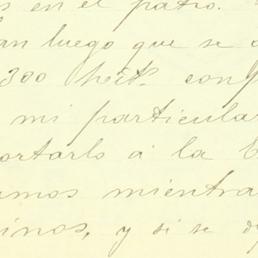 s en el patio.
an luego que se
300 hect. con
mi particular
ortarlo á la
amos mientra
inos, y si se